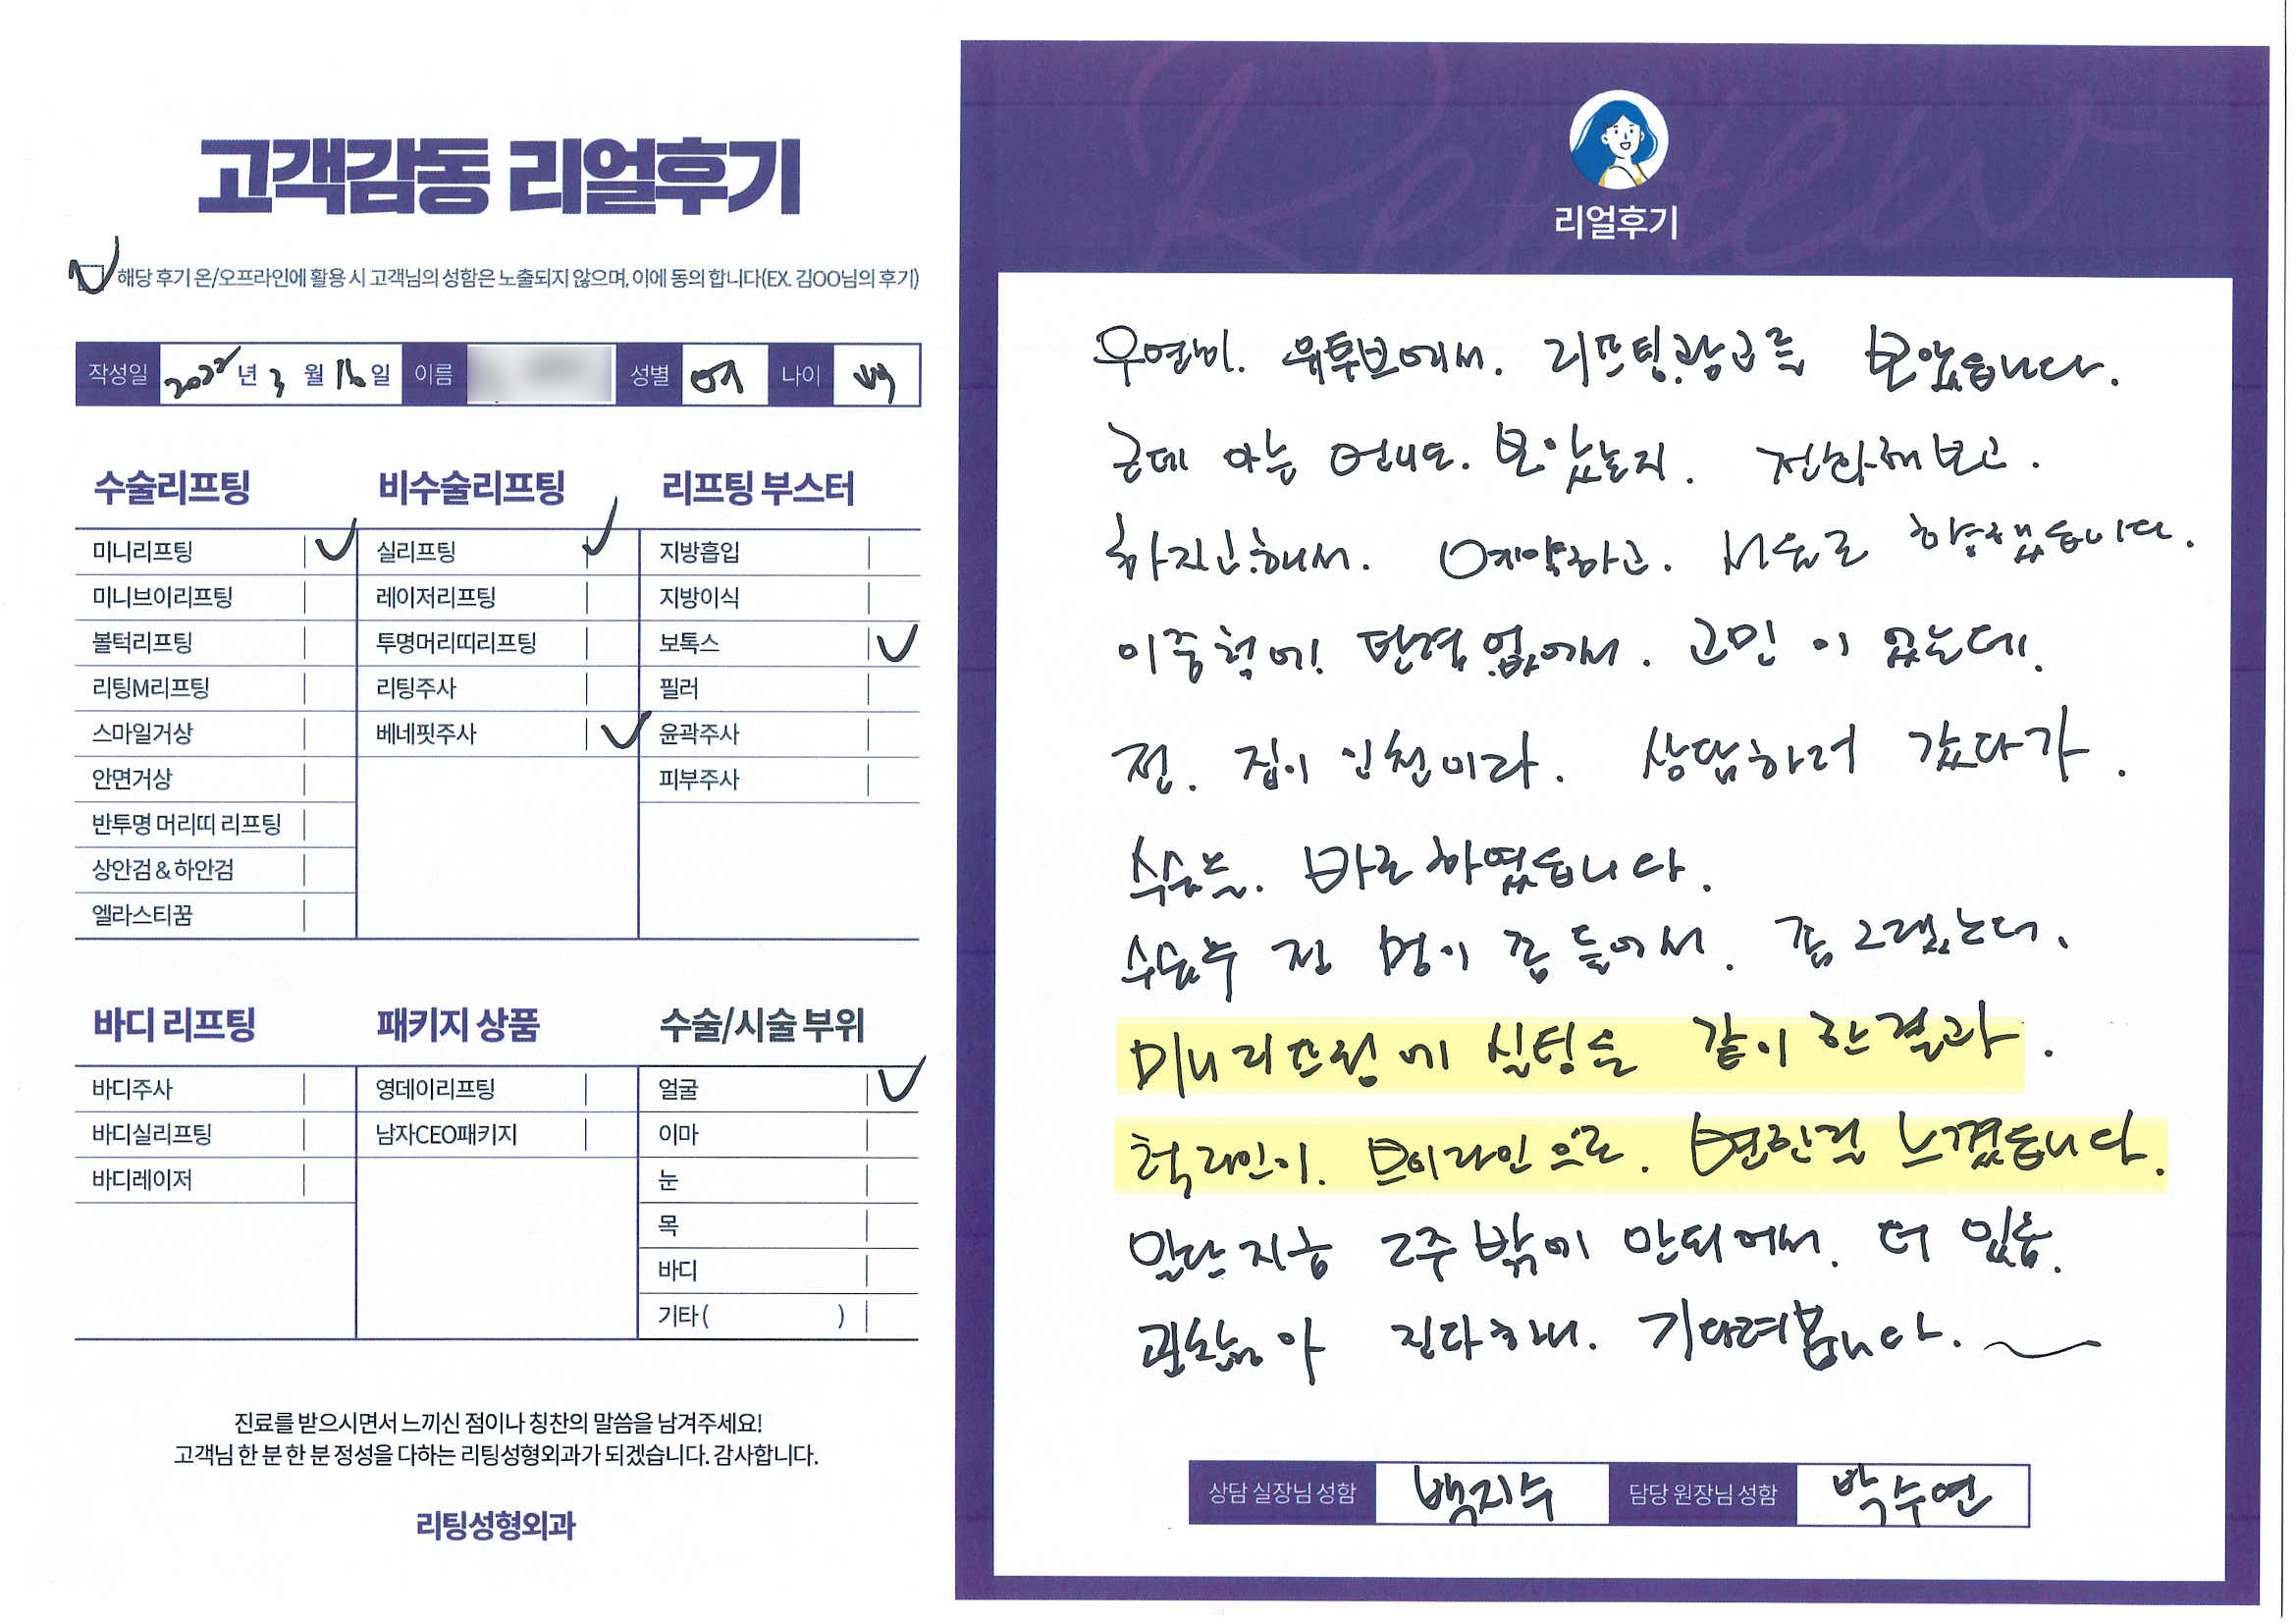 고객감동 리얼후기
해당 후기 온/오프라인에 활용 시 고객님의 성함은 노출되지 않으며, 이에 동의 합니다(EX. 김OO님의 후기)
작성일 2022년 3월 16일 이름 성별 여 나이 49
수술리프팅 비수술리프팅 리프팅 부스터
미니리프팅 실리프팅 지방흡입
미니브이리프팅 레이저리프팅 지방이식
볼턱리프팅 투명머리띠리프팅 보톡스
리팅M리프팅 리팅주사 필러
스마일거상 베네핏주사 윤곽주사
안면거상 피부주사
반투명 머리띠 리프팅
상안검 & 하안검
엘라스티꿈
바디 리프팅 패키지 상품 수술/시술 부위
바디주사 영데이리프팅 얼굴
바디실리프팅 남자CEO패키지 이마
바디레이저 눈
목
바디
기타 ( )
진료를 받으시면서 느끼신 점이나 칭찬의 말씀을 남겨주세요!
고객님 한 분 한 분 정성을 다하는 리팅성형외과가 되겠습니다. 감사합니다.
리팅성형외과
Review
리얼후기
우연히. 유튜브에서. 리프팅.광고를 보았습니다.
근데 아는 언니도. 보았는지. 전화해보고.
하자고.해서. 예약하고. 서울로 향했습니다.
이중턱에! 탄력 없어서. 고민이 였는데.
전. 집이 인천이라. 상담하러 갔다가.
수술. 바로 하였습니다.
수술후 전 멍이 좀 들어서. 좀 그랬는데.
미니리프팅에 실팅을 같이 한결과.
턱라인이. 브이라인으로. 변한걸 느꼈습니다.
일단 지금 2주 밖에 안되어서. 더 있음.
괜찮아 진다하니. 기다려봅니다.
상담 실장님 성함 백지수 담당 원장님 성함 박수연